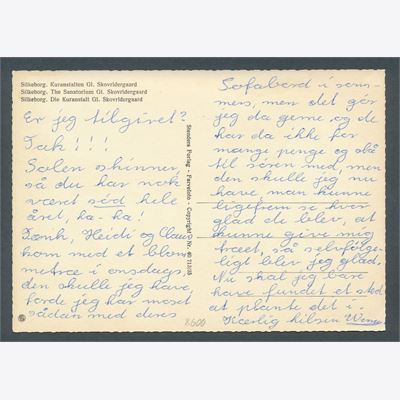 Silkeborg. Kuranstalten Gl. Skovridergaard
Silkeborg. The Sanatorium Gl. Skovridergaard
Silkeborg. Die Kuranstalt Gl. Skovridergaard
Er jeg tilgivet?
Tak!!!
Solen skinner,
så du har nok
været sød hele
året, ha-ha!
Tænk, Heidi og Claus
kom med et blom
metræ i onsdags,
den skulle jeg have,
fordi jeg har moset
sådan med deres
Stenders Forlag - Farvefoto - Copyright Nr.
Sofabord i som-
mers, men det gør
jeg da gerne, og de
har da ikke for
mange penge og så
til søren med, men
den skulle jeg nu
have, man kunne
ligefrem se hvor
glad de blev, at
kunne give mig
træet, så selvfølge-
ligt blev jeg glad.
Nu skal jeg bare
have fundet et sted
at plante det i.
Kærlig hilsen